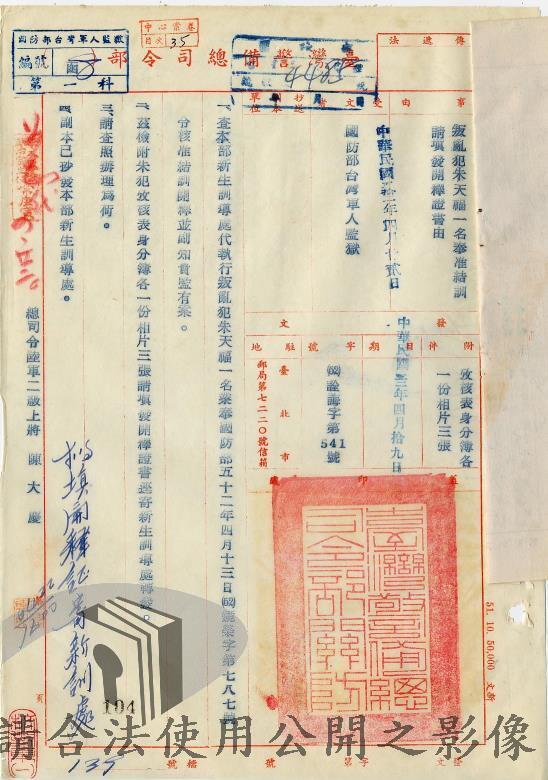 臺灣警備總司令部
法遞傳
國防部台灣軍人監獄
編號
第一科
中心黨卷
目次 35
事由
叛亂犯朱天福一名奉准結訓
請填發開釋證書由
受文者
中華民國
國防部台灣軍人監獄
發文
附件
攷核表身分簿各
一份相片三張
日期
中華民國五十二年四月拾九日
字號
字第541號
駐地
臺北市
郵局第七二二〇號信箱
一、查本部新生訓導處代執行叛亂犯朱天福一名業奉國防部五十二年四月十三日字第七八七號
令核准結訓開釋並副知貴監有案。
二、茲檢附朱犯攷核表身分簿各一份相片三張請填發開釋證書逕寄新生訓導處轉發。
三、請查照辦理為荷。
四、副本已抄發本部新生訓導處。
總司令陸軍二級上將 陳大慶
臺灣警備總司令部關防
51. 10. 50,000
104
135
檔號
字第
請合法使用公開之影像